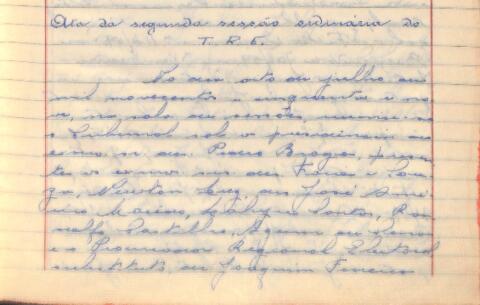 Ata da segunda sessão ordinária do
T. R. E.
Ao dia oito de julho de
mil novecentos e cinquenta e no
ve, na sala de sessões, reuniu-se
o Tribunal sob a presidência do
exmo sr. des. Braga, presen
tes o exmo srs. des. Faria e Sou
za, Newton Luz, José
Santos, Ro
Castilho,
e o Procurador Regional Eleitoral
substituto, Joaquim Ferreira